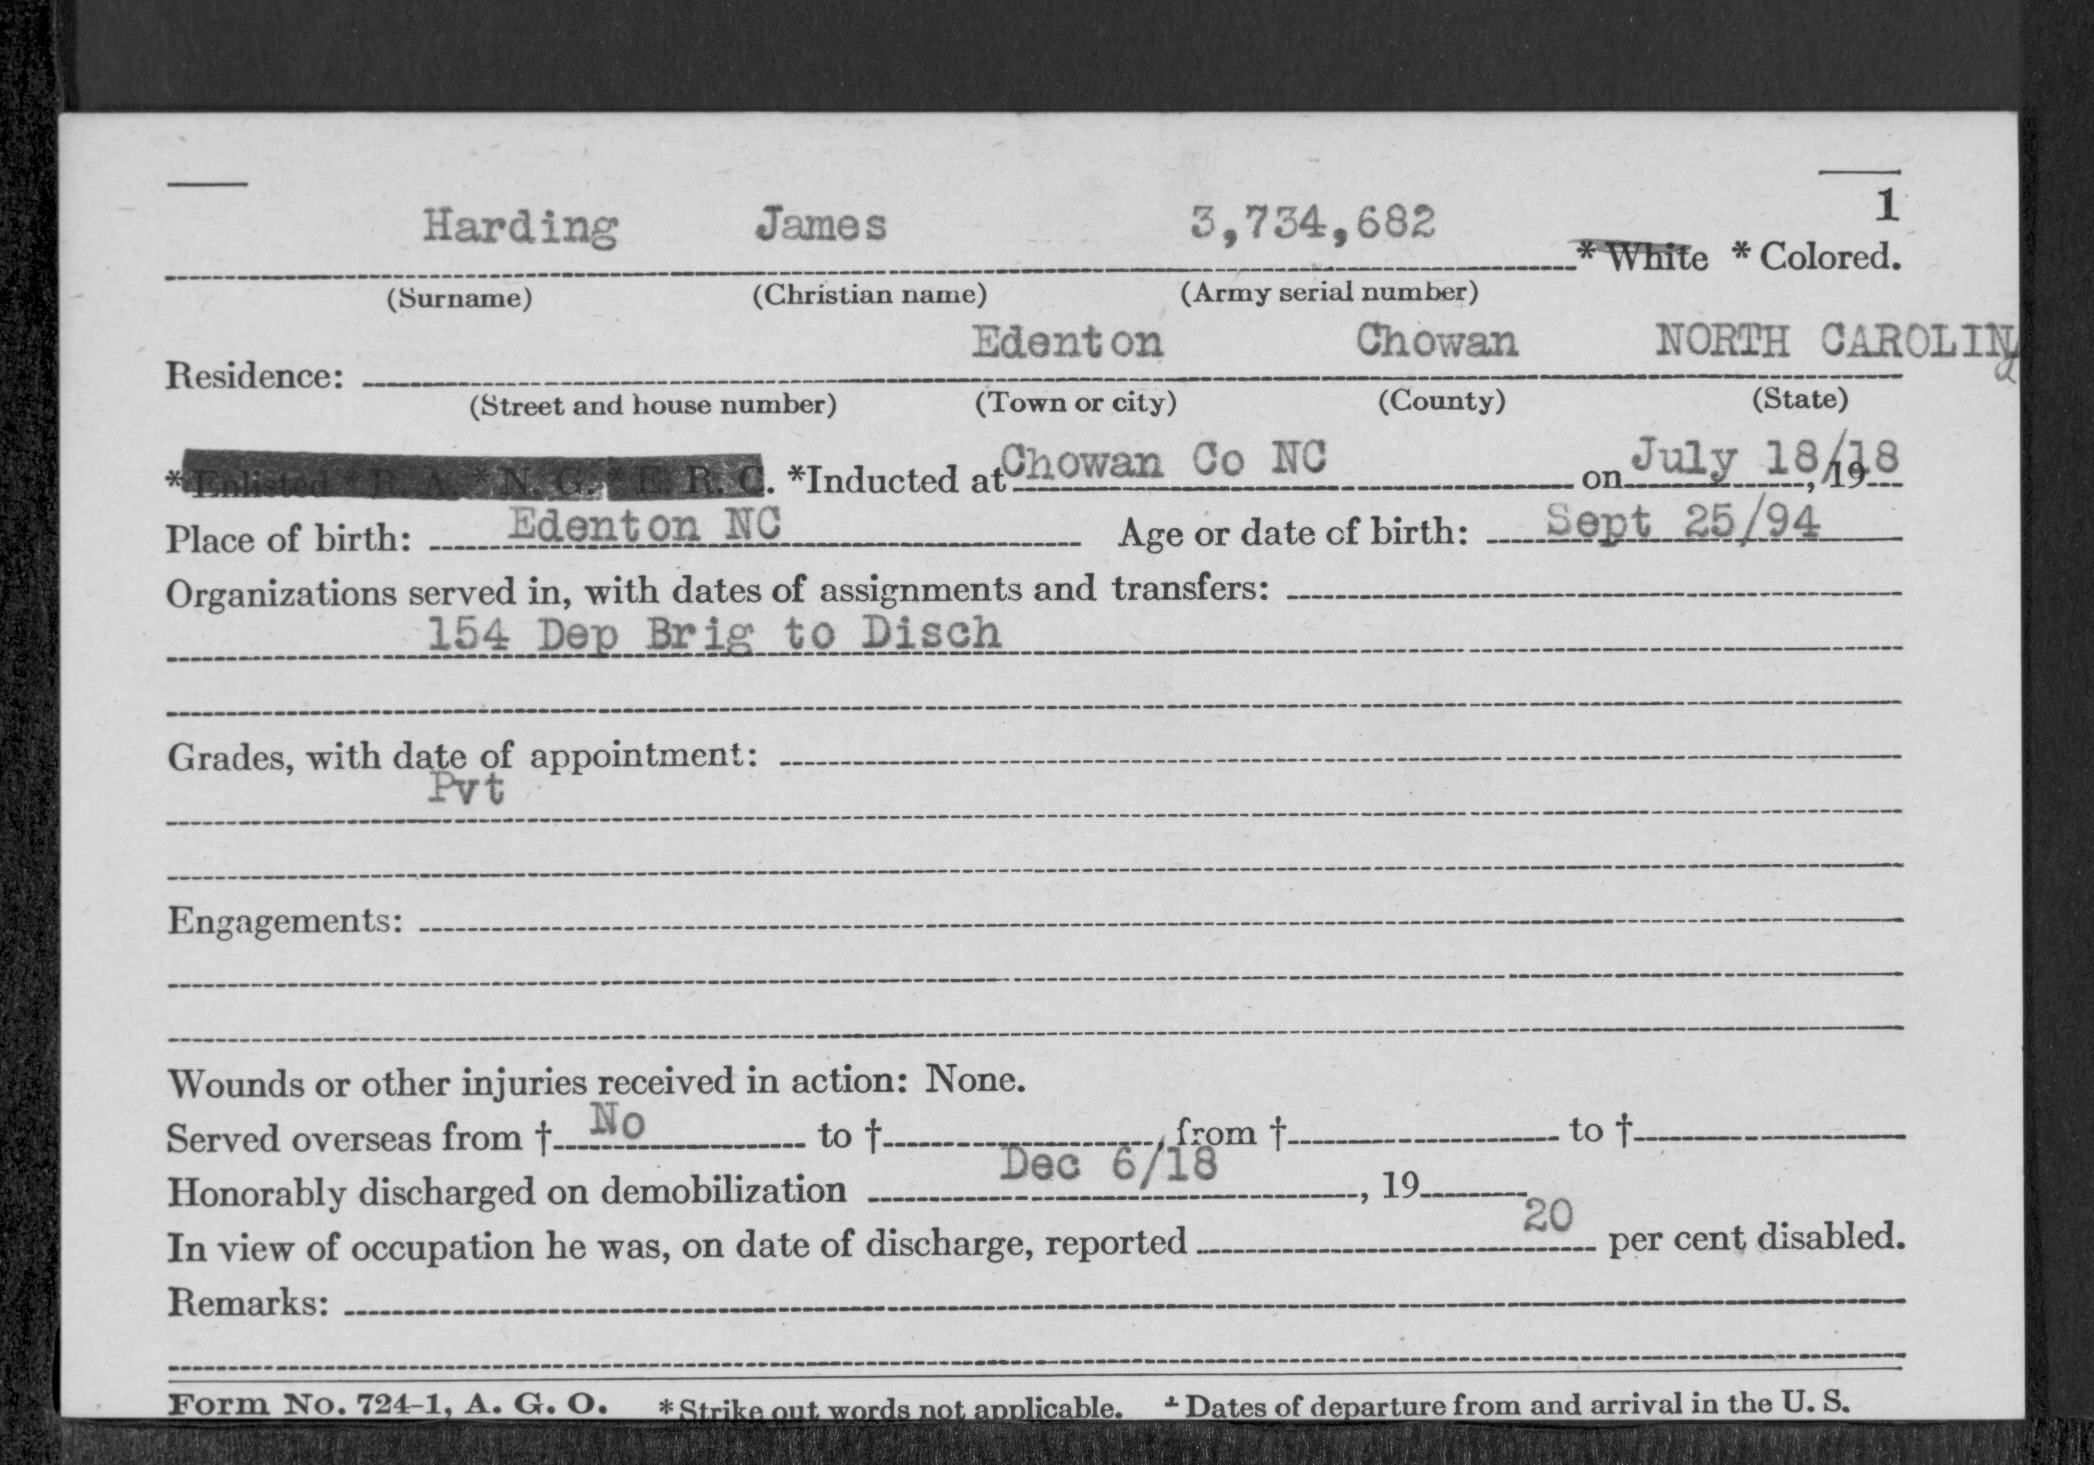 1
Harding James 3,734,682 * White * Colored.
(Surname) (Christian name) (Army serial number)
Edenton Chowan NORTH CAROLINa
Residence:
(Street and house number) (Town or city) (County) (State)
*Enlisted *R. A. *N. G. *E. R. C. *Inducted at Chowan Co NC on July 18/18, 19
Place of birth: Edenton NC Age or date of birth: Sept 25/94
Organizations served in, with dates of assignments and transfers:
154 Dep Brig to Disch
Grades, with date of appointment:
Pvt
Engagements:
Wounds or other injuries received in action: None.
Served overseas from † No to †, from † to †
Honorably discharged on demobilization Dec 6/18, 19
In view of occupation he was, on date of discharge, reported 20 per cent disabled.
Remarks:
Form No. 724-1, A. G. O. *Strike out words not applicable. † Dates of departure from and arrival in the U. S.